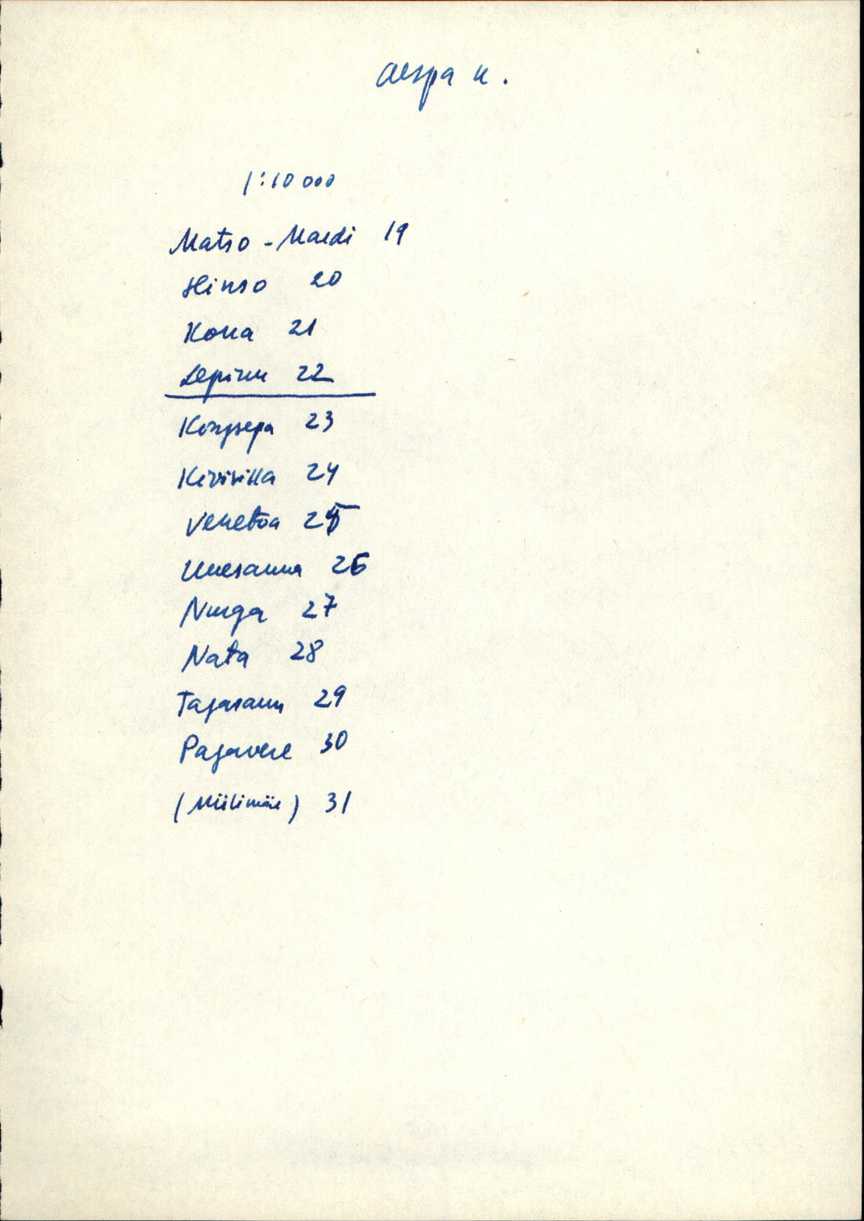 Aespa k.
1:10 000
Matso-Mardi 19
Hinso 20
Kona 21
Lepiku 22
Kõrgsepa 23
Kivisilla 24
Venetoa 25
Uuesauna 26
Nurga 27
Nata 28
Tagasauna 29
Pajavere 30
(Miilimäe) 31